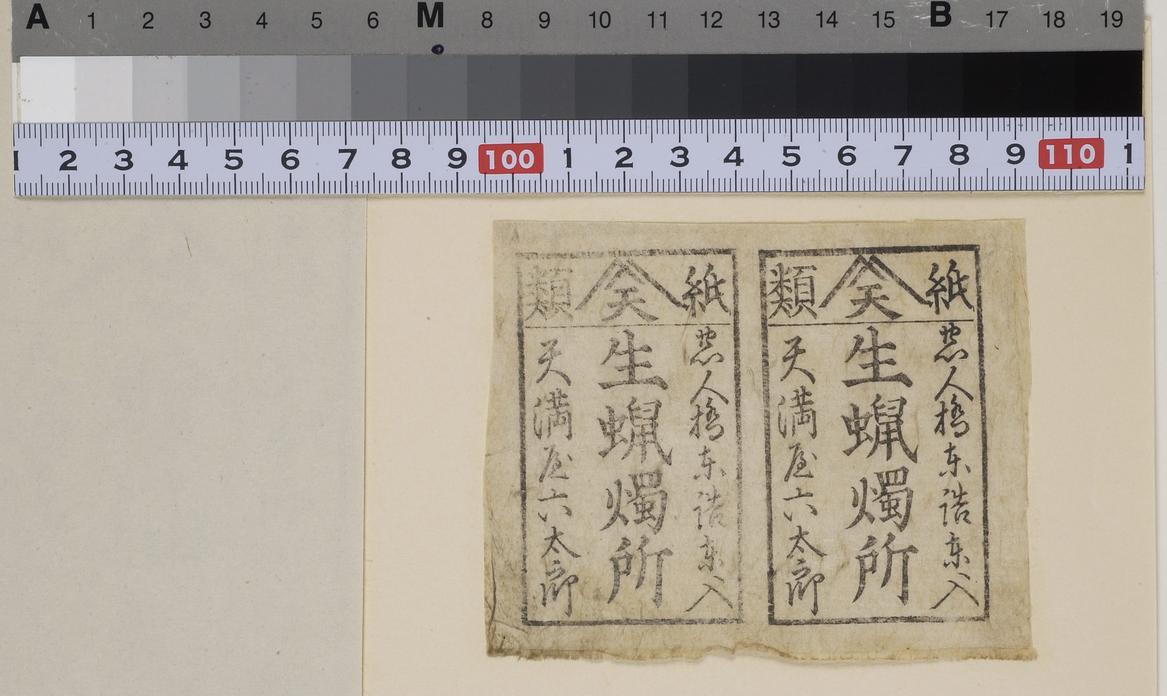 A 1 2 3 4 5 6 M 8 9 10 11 12 13 14 15 B 17 18 19
1 2 3 4 5 6 7 8 9 100 1 2 3 4 5 6 7 8 9 110 1
紙天類
農人橋東詰東入
生蝋燭所
天満屋六太郎
紙天類
農人橋東詰東入
生蝋燭所
天満屋六太郎